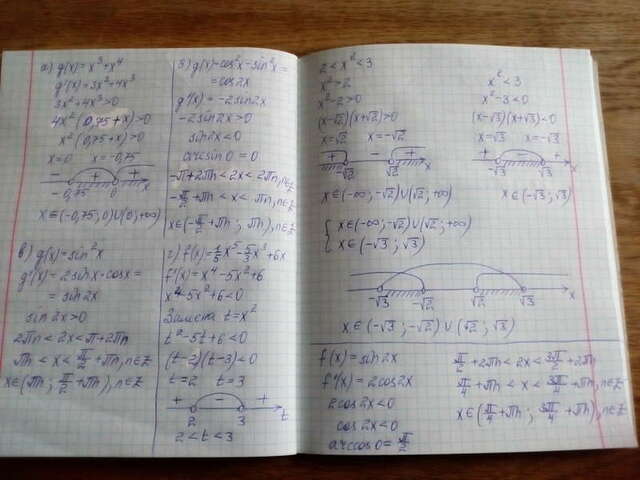 а) g(x)=x³+x⁴
g'(x)=3x²+4x³
3x²+4x³>0
4x²(0,75+x)>0
x²(0,75+x)>0
x=0 x=-0,75
- + +
-0,75 0 x
x∈(-0,75; 0)∪(0; +∞)
б) g(x)=cos²x-sin²x=
=cos2x
g'(x)=-2sin2x
-2sin2x>0
sin2x<0
arcsin0=0
-π+2πn<2x<2πn, n∈Z
-π/2+πn<x<πn, n∈Z
x∈(-π/2+πn; πn), n∈Z
в) g(x)=sin²x
g'(x)=2sinx·cosx=
=sin2x
sin2x>0
2πn<2x<π+2πn
πn<x<π/2+πn, n∈Z
x∈(πn; π/2+πn), n∈Z
г) f(x)=1/5x⁵-5/3x³+6x
f'(x)=x⁴-5x²+6
x⁴-5x²+6<0
Замена t=x²
t²-5t+6<0
(t-2)(t-3)<0
t=2 t=3
+ - +
2 3 t
2<t<3
2<x²<3
x²>2
x²-2>0
(x-√2)(x+√2)>0
x=√2 x=-√2
+ - +
-√2 √2 x
x∈(-∞; -√2)∪(√2; +∞)
x²<3
x²-3<0
(x-√3)(x+√3)<0
x=√3 x=-√3
+ - +
-√3 √3 x
x∈(-√3; √3)
{ x∈(-∞; -√2)∪(√2; +∞)
x∈(-√3; √3)
-√3 -√2 √2 √3 x
x∈(-√3; -√2)∪(√2; √3)
f(x)=sin2x
f'(x)=2cos2x
2cos2x<0
cos2x<0
arccos0=π/2
π/2+2πn<2x<3π/2+2πn
π/4+πn<x<3π/4+πn, n∈Z
x∈(π/4+πn; 3π/4+πn), n∈Z